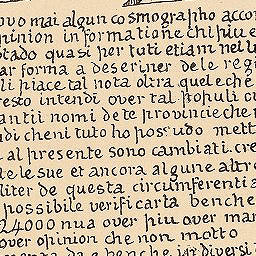 ovo mai algun cosmographo accor
pinion informatione chi piu e
otado quasi per tuti etiam nel u
ar forma a descriuer de le regi
li piace tal nota oltra quel e chè
resto intendi over tal populi cu
antii nomi de te provincie che p
di che ni tuto ho possudo mett
al presente sono cambiati. cre
de le sue et ancora algune altre
liter de questa circumferentia
possibile verificarta benche
24000 nua over piu over man
over opinion che non motto
da e benche sia diversi